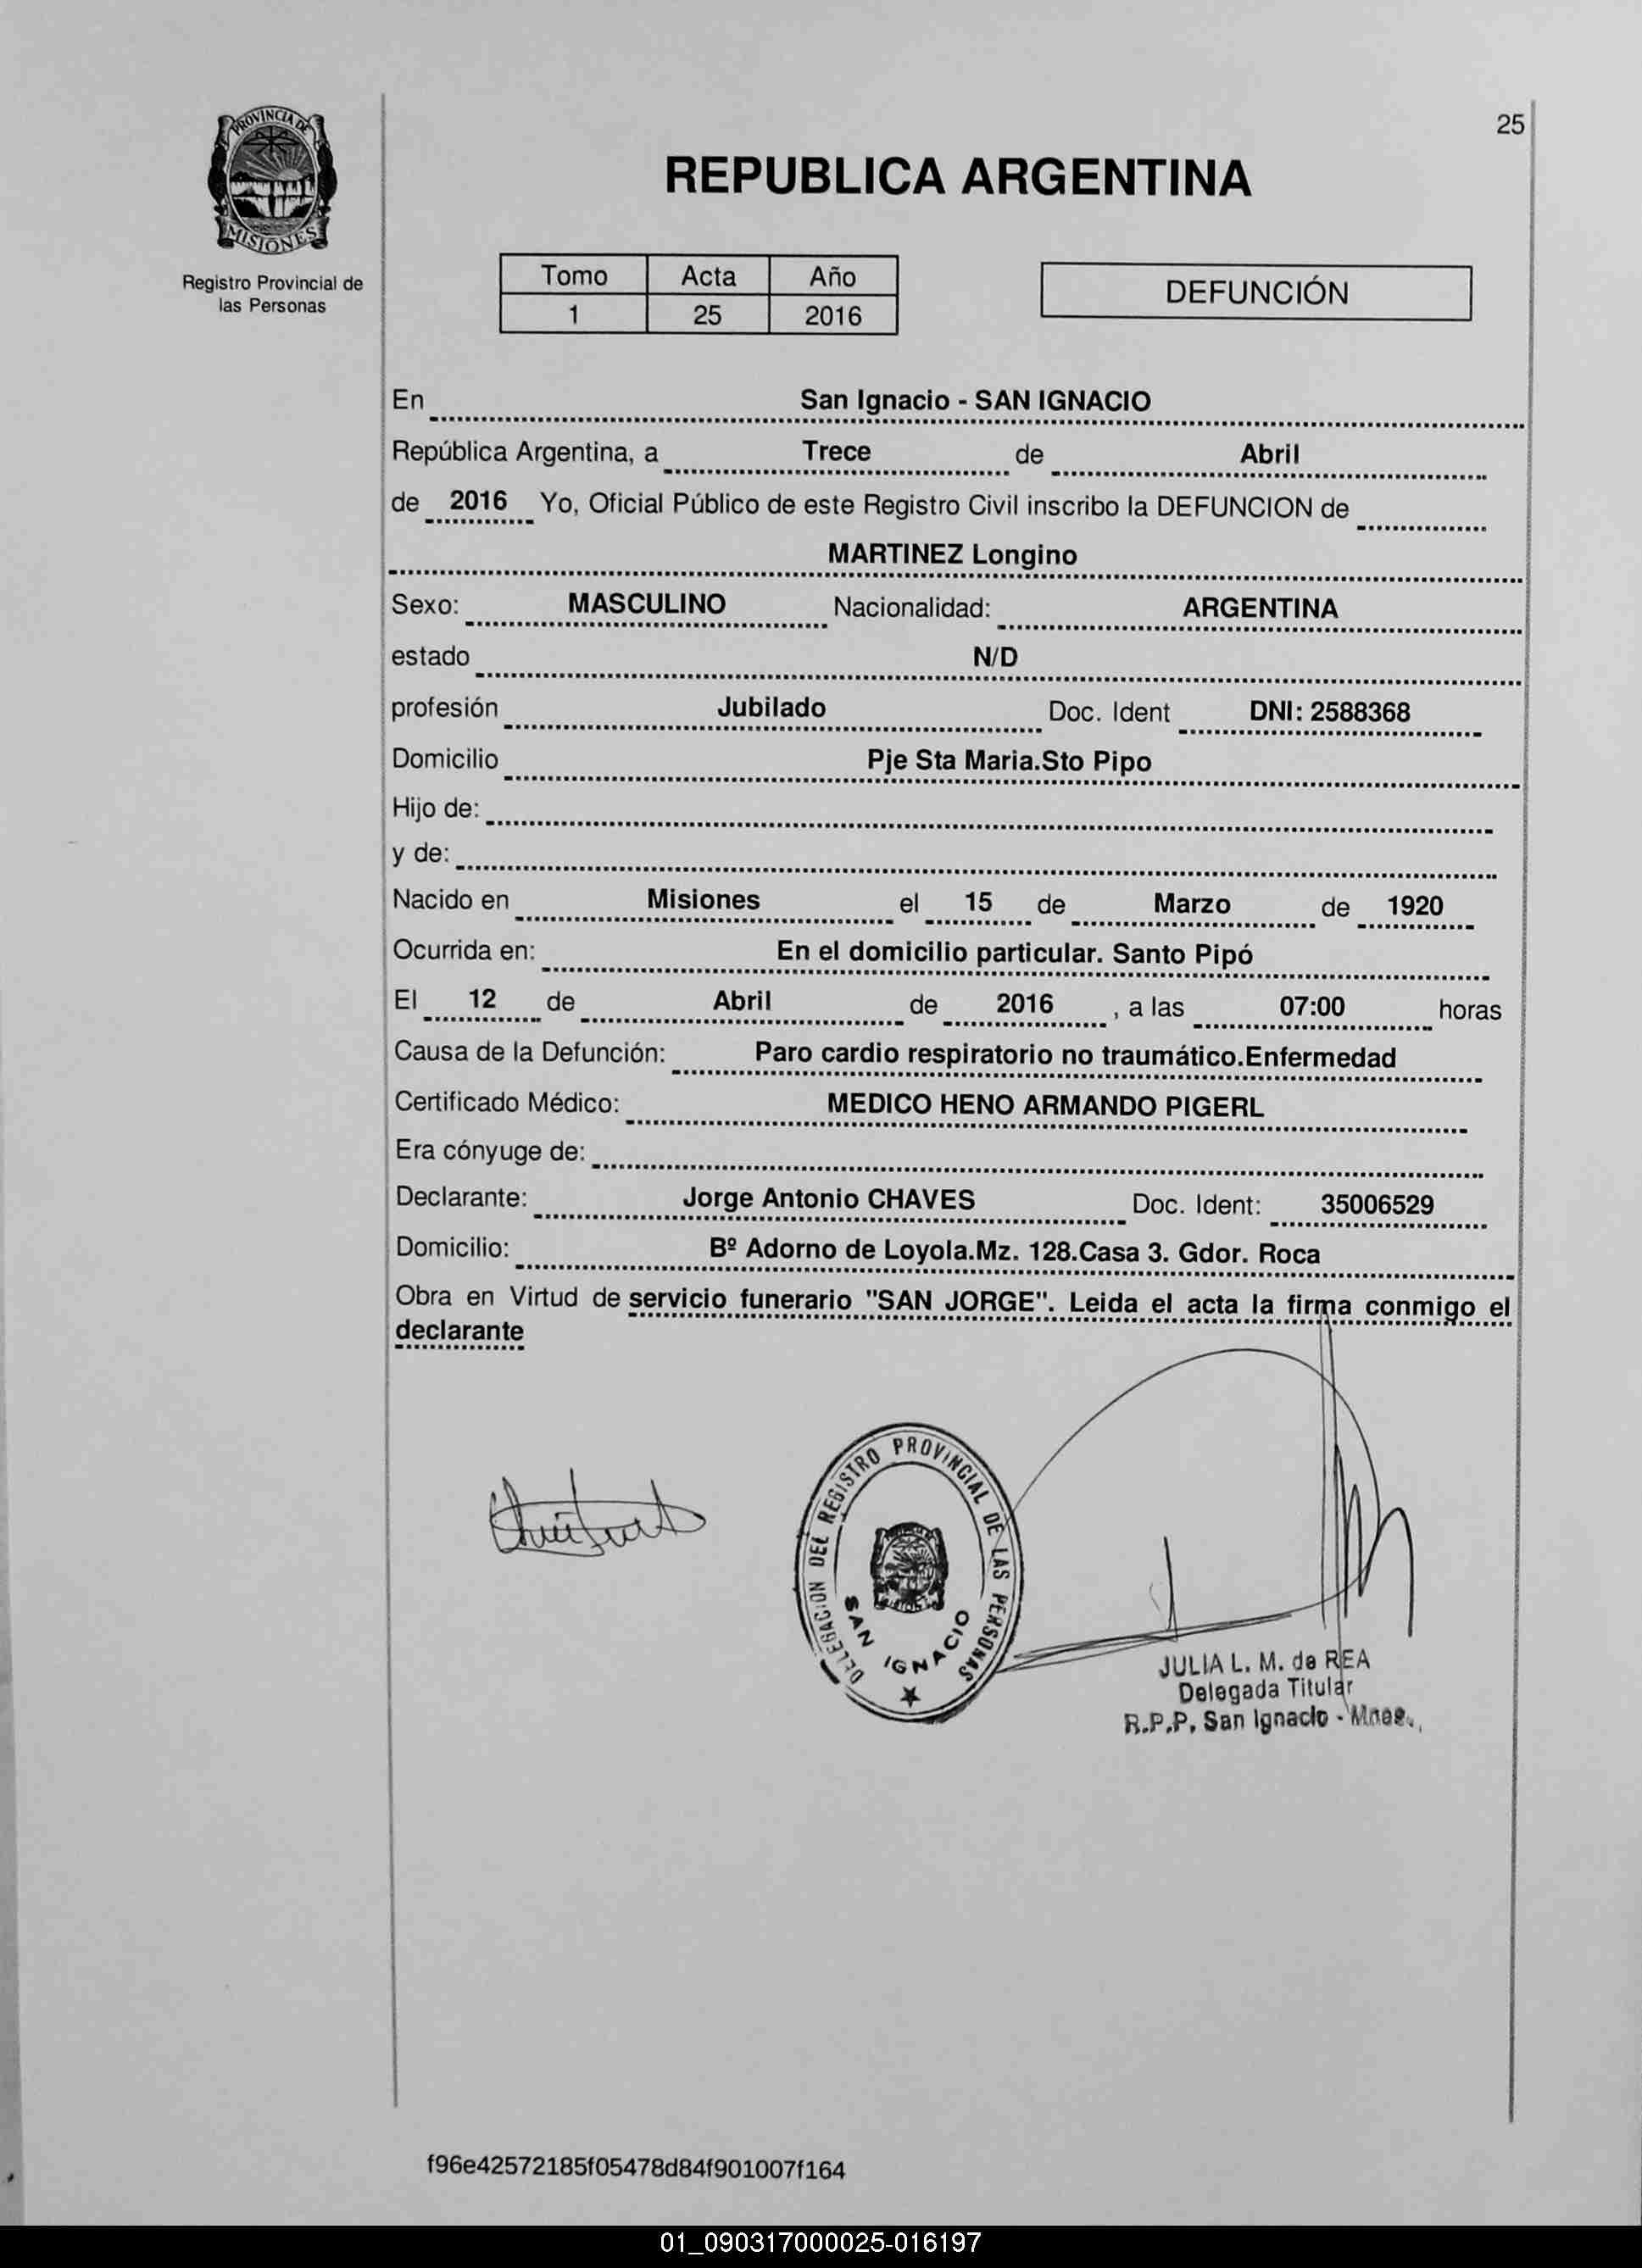 25
PROVINCIA DE
MISIONES
Registro Provincial de
las Personas
REPUBLICA ARGENTINA
Tomo Acta Año
1 25 2016
DEFUNCIÓN
En San Ignacio - SAN IGNACIO
República Argentina, a Trece de Abril
de 2016 Yo, Oficial Público de este Registro Civil inscribo la DEFUNCION de
MARTINEZ Longino
Sexo: MASCULINO Nacionalidad: ARGENTINA
estado N/D
profesión Jubilado Doc. Ident DNI: 2588368
Domicilio Pje Sta Maria.Sto Pipo
Hijo de:
y de:
Nacido en Misiones el 15 de Marzo de 1920
Ocurrida en: En el domicilio particular. Santo Pipó
El 12 de Abril de 2016 , a las 07:00 horas
Causa de la Defunción: Paro cardio respiratorio no traumático.Enfermedad
Certificado Médico: MEDICO HENO ARMANDO PIGERL
Era cónyuge de:
Declarante: Jorge Antonio CHAVES Doc. Ident: 35006529
Domicilio: Bº Adorno de Loyola.Mz. 128.Casa 3. Gdor. Roca
Obra en Virtud de servicio funerario "SAN JORGE". Leida el acta la firma conmigo el
declarante
DELEGACION DEL REGISTRO PROVINCIAL DE LAS PERSONAS
SAN IGNACIO
JULIA L. M. de REA
Delegada Titular
R.P.P. San Ignacio - Mnes.
f96e42572185f05478d84f901007f164
01_090317000025-016197